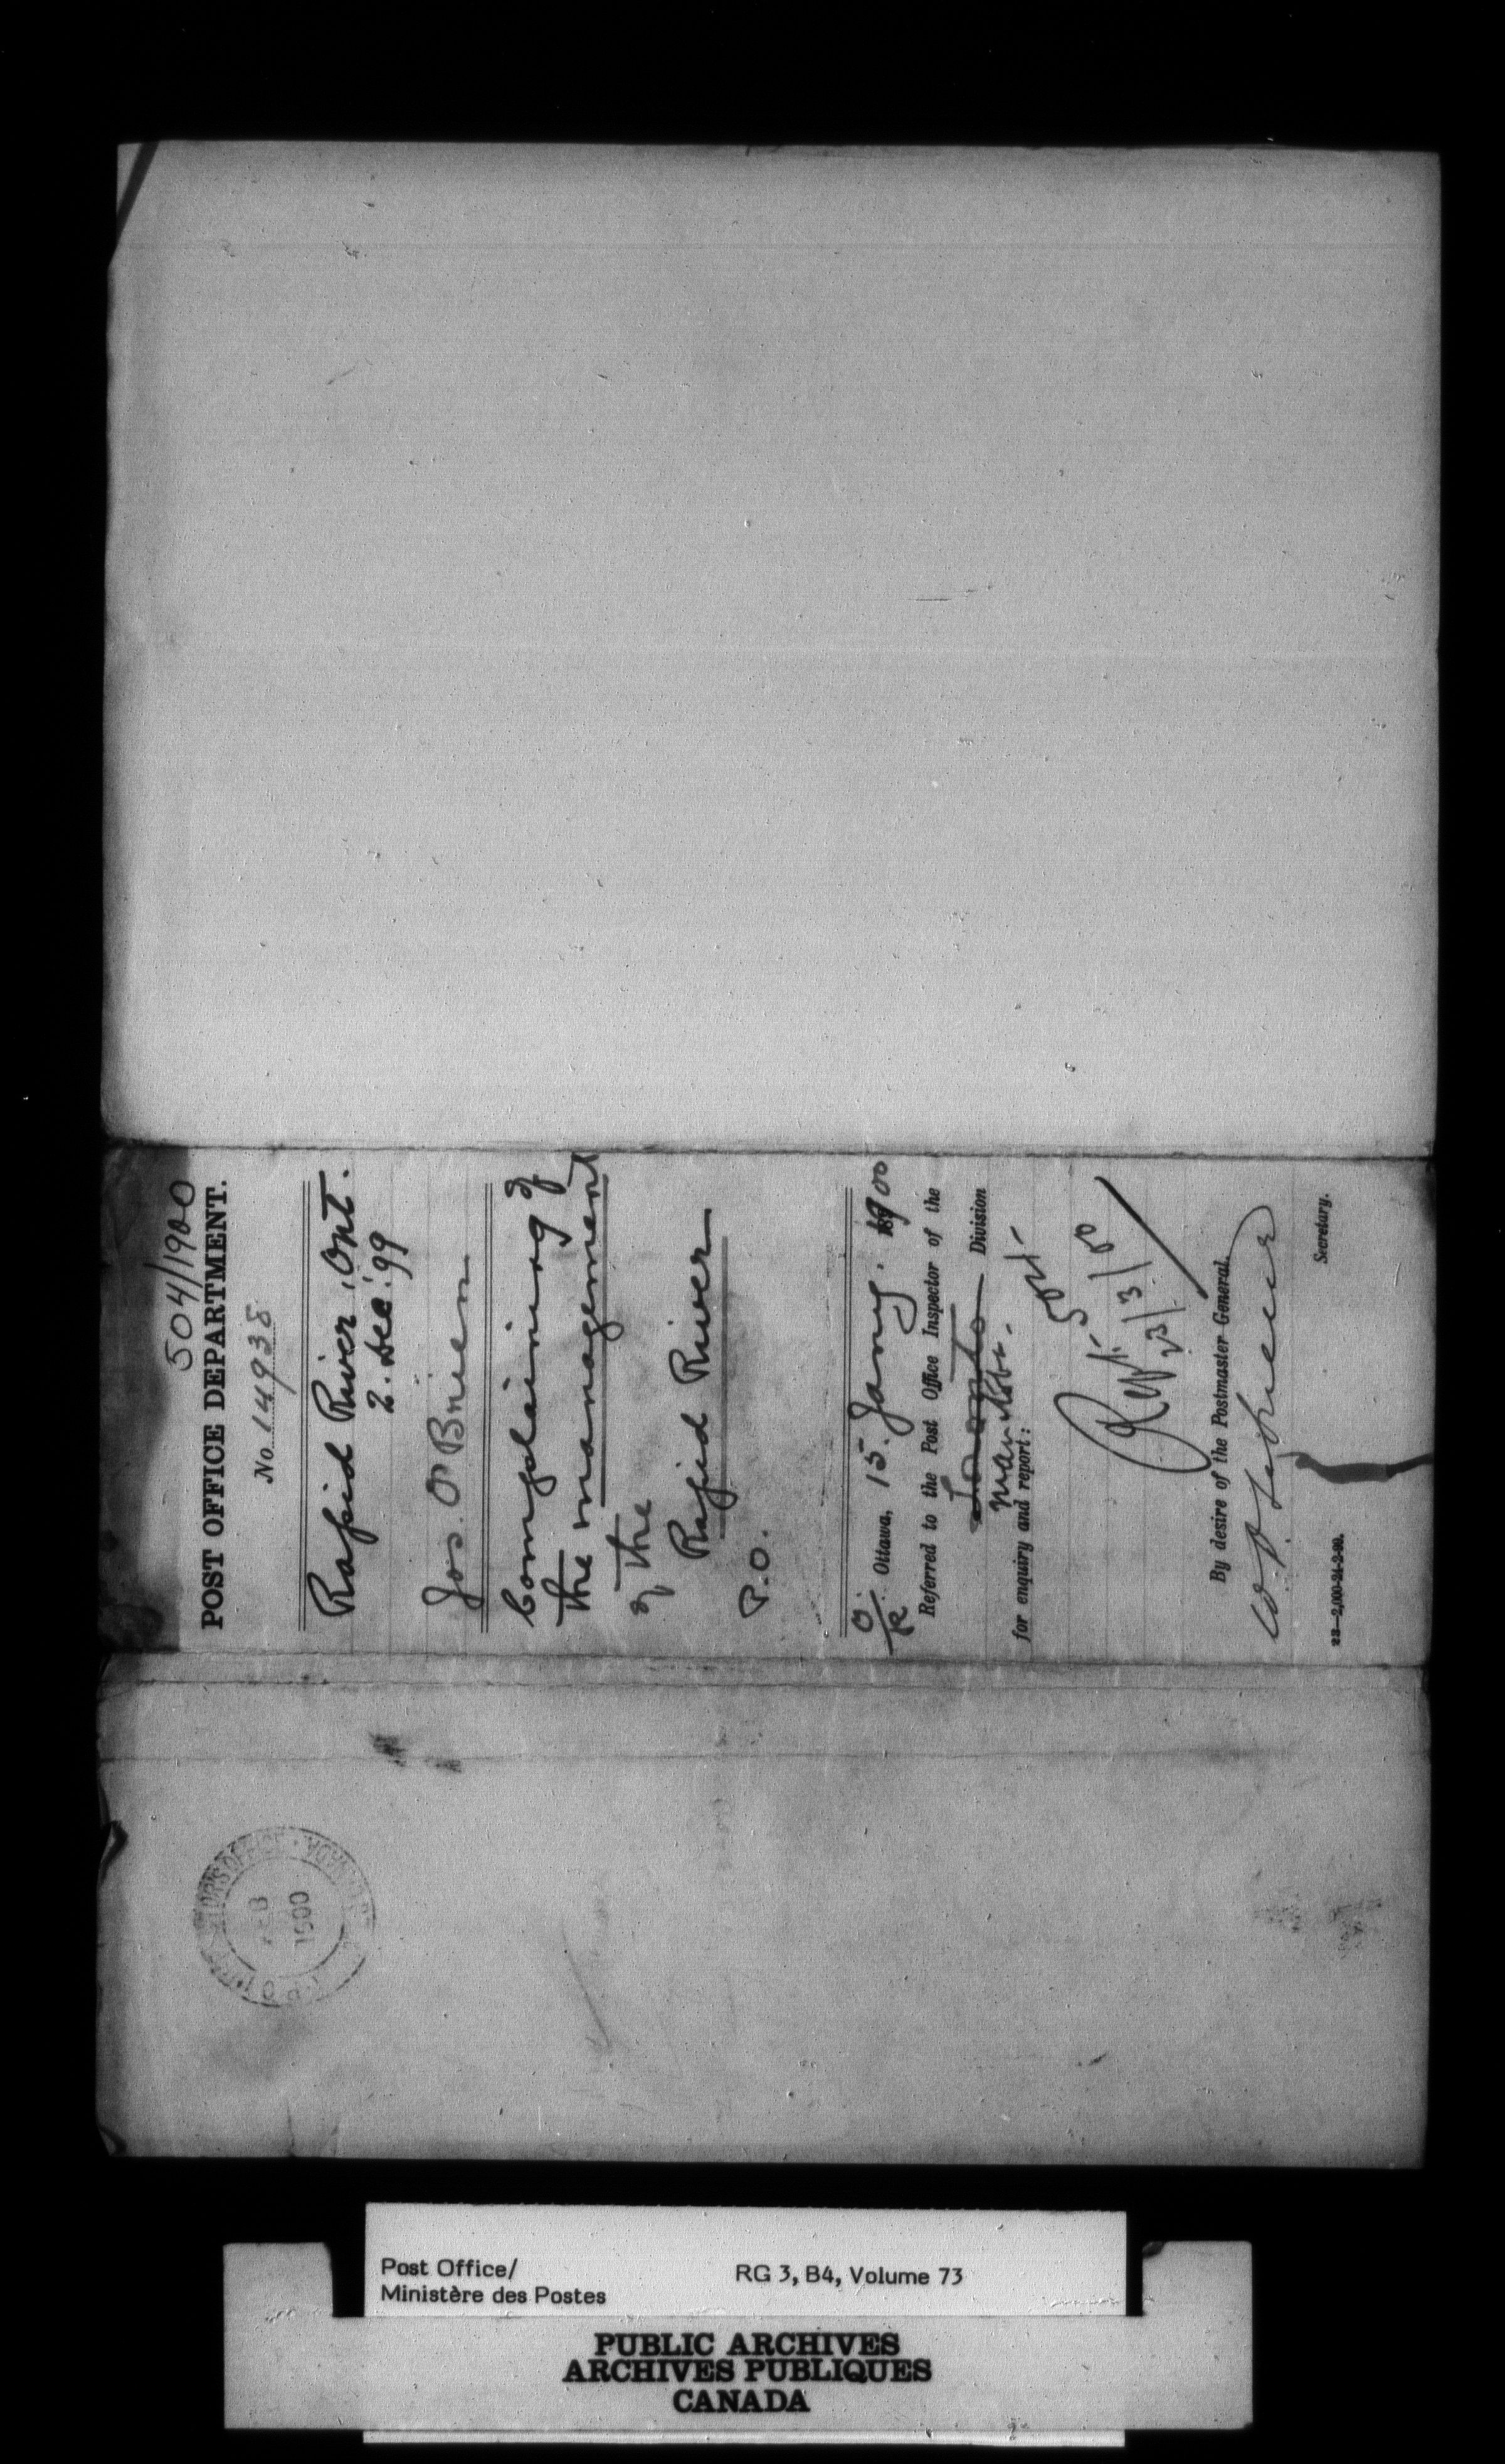 504/1900
POST OFFICE DEPARTMENT.
No. 14938
Rapid River, Ont.
2. Dec: '99
Jos. O'Brien
Complaining of
the management
of the
Rapid River
P.O.
Ottawa, 15. Jany. 1900
Referred to the Post Office Inspector of the
Toronto Division
Manitoba.
for enquiry and report:
Rept. 504
23/3/00
By desire of the Postmaster General.
Secretary.
23—2,000-21-2-99.
FEB
1900
Post Office/
Ministère des Postes
RG 3, B4, Volume 73
PUBLIC ARCHIVES
ARCHIVES PUBLIQUES
CANADA